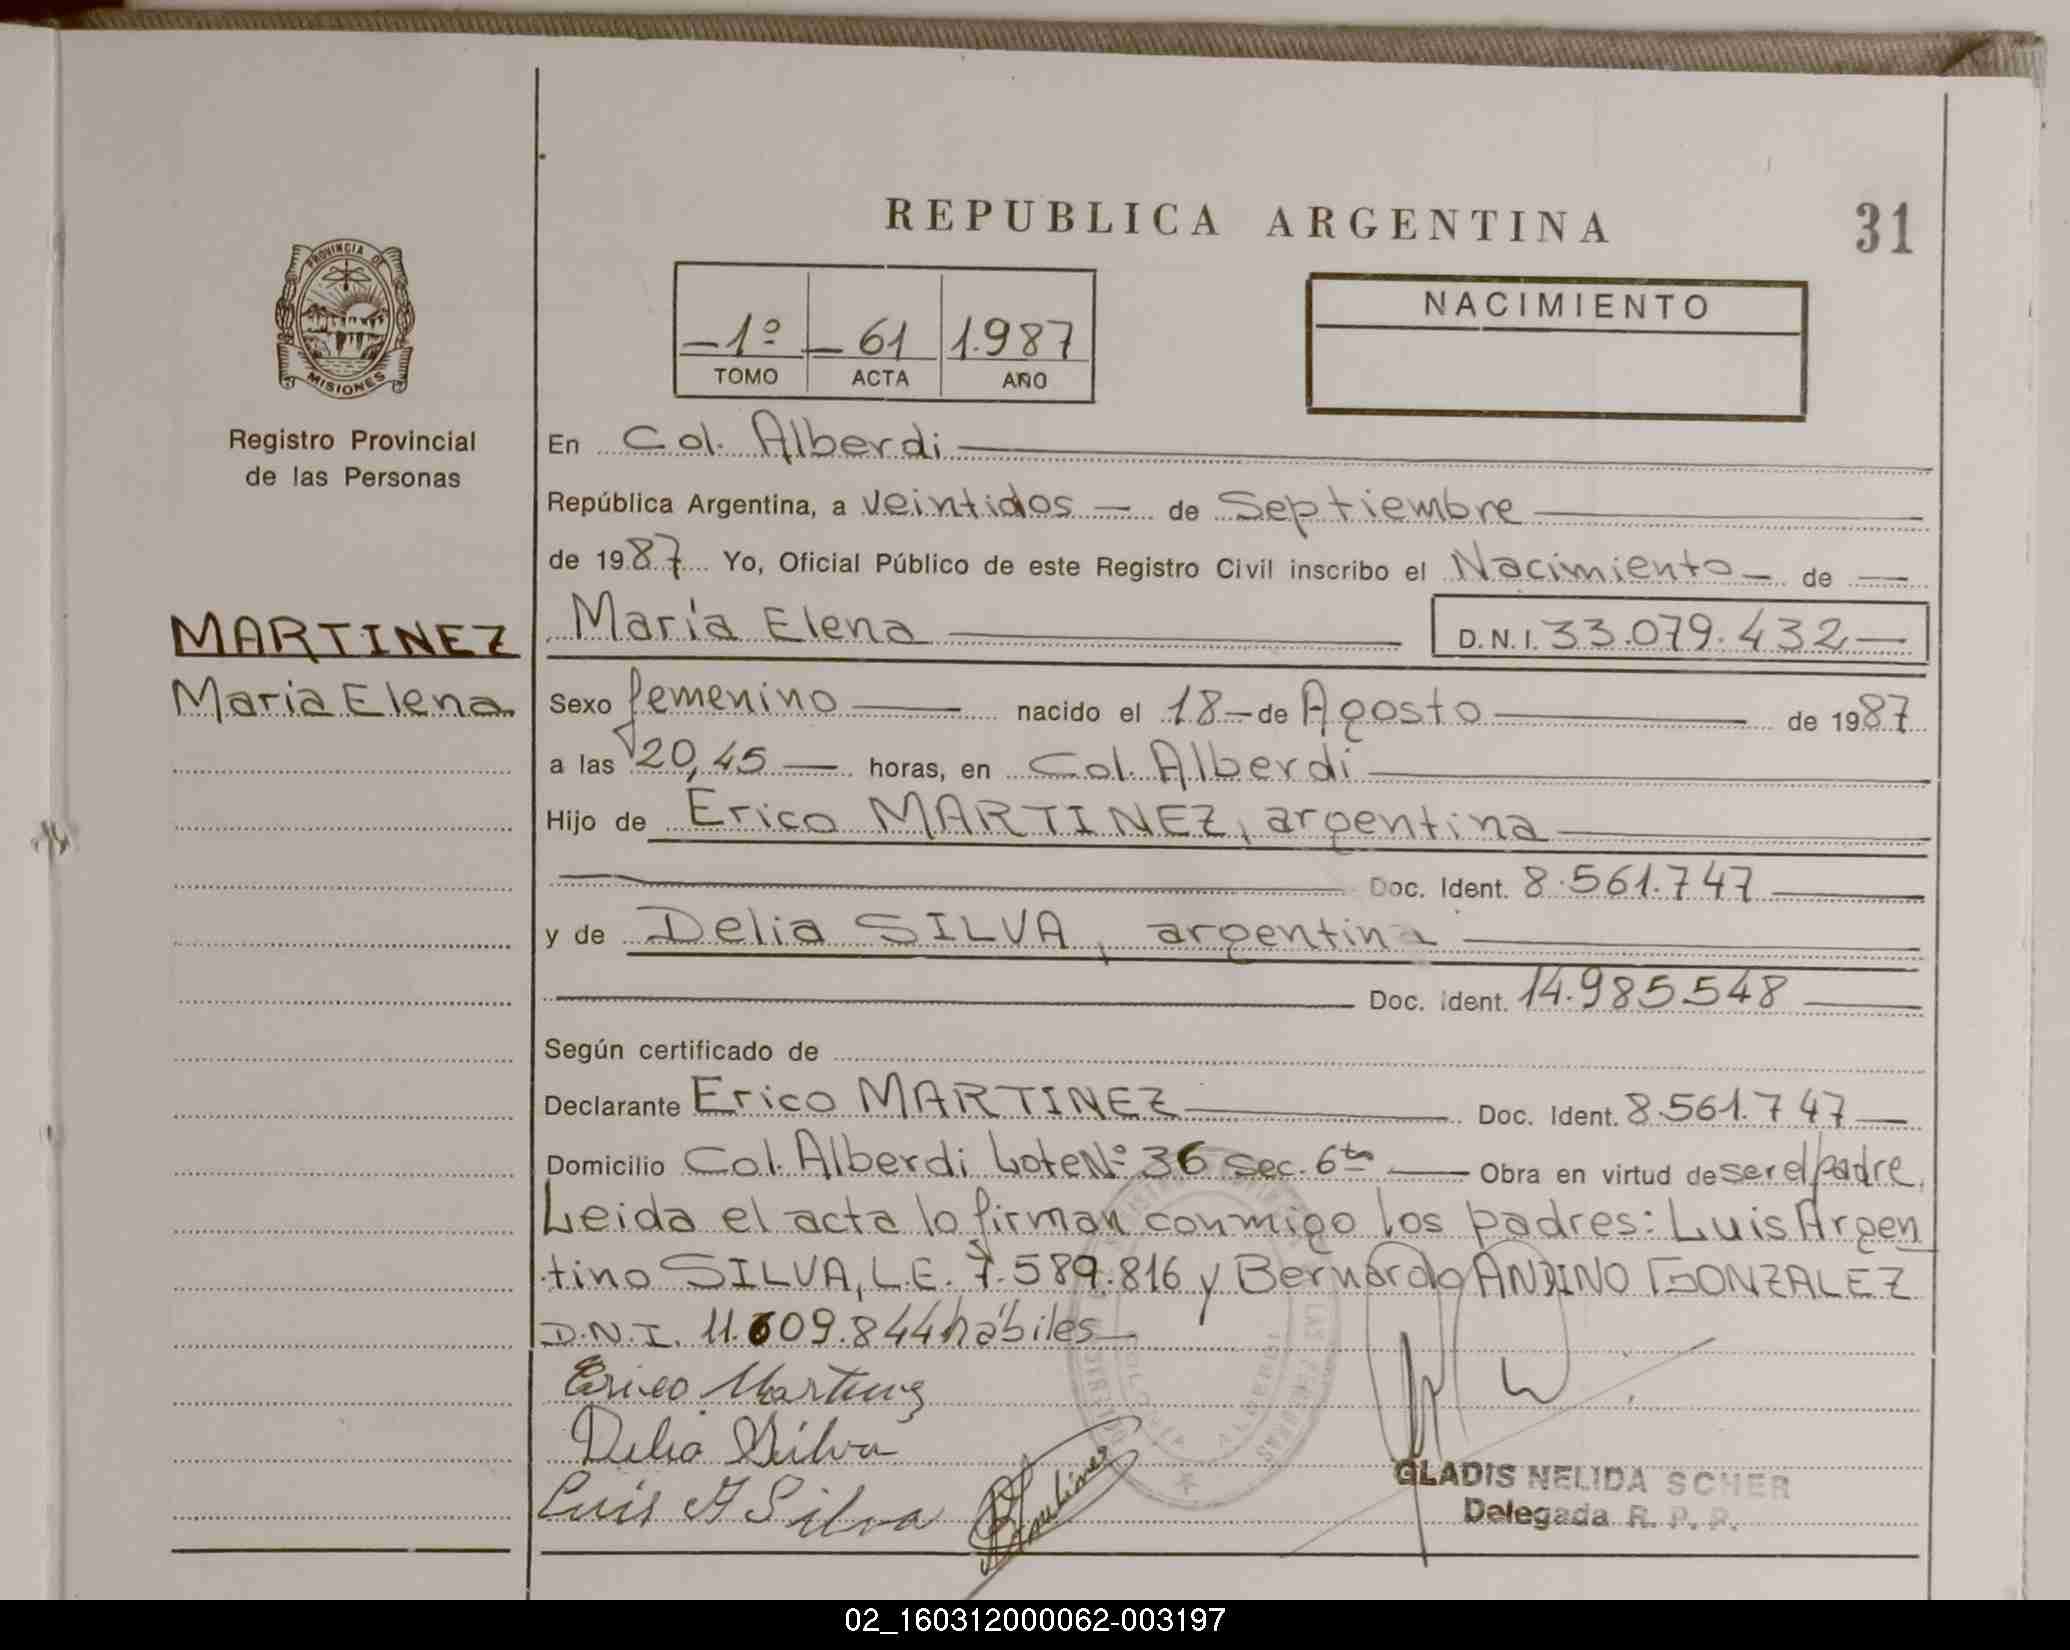 REPUBLICA ARGENTINA
31
PROVINCIA DE
MISIONES
Registro Provincial
de las Personas
1º 61 1.987
TOMO ACTA AÑO
NACIMIENTO
En Col. Alberdi
República Argentina, a veintidos de Septiembre
de 1987 Yo, Oficial Público de este Registro Civil inscribo el Nacimiento de
MARTINEZ
Maria Elena
María Elena D.N.I. 33.079.432
Sexo femenino nacido el 18 de Agosto de 1987
a las 20,45 horas, en Col. Alberdi
Hijo de Erico MARTINEZ, argentina
Doc. Ident. 8.561.747
y de Delia SILVA, argentina
Doc. Ident. 14.985548
Según certificado de
Declarante Erico MARTINEZ Doc. Ident. 8.561.747
Domicilio Col. Alberdi Lote Nº 36 sec. 6ta Obra en virtud de ser el padre.
Leida el acta lo firman conmigo los padres: Luis Argen
tino SILVA, L.E. 7.589.816 y Bernardo ANDINO GONZALEZ
D.N.I. 11.609.844 hábiles
Erico Martinez
Delia Silva
Luis A Silva
GLADIS NELIDA SCHER
Delegada R. P. P.
02_160312000062-003197